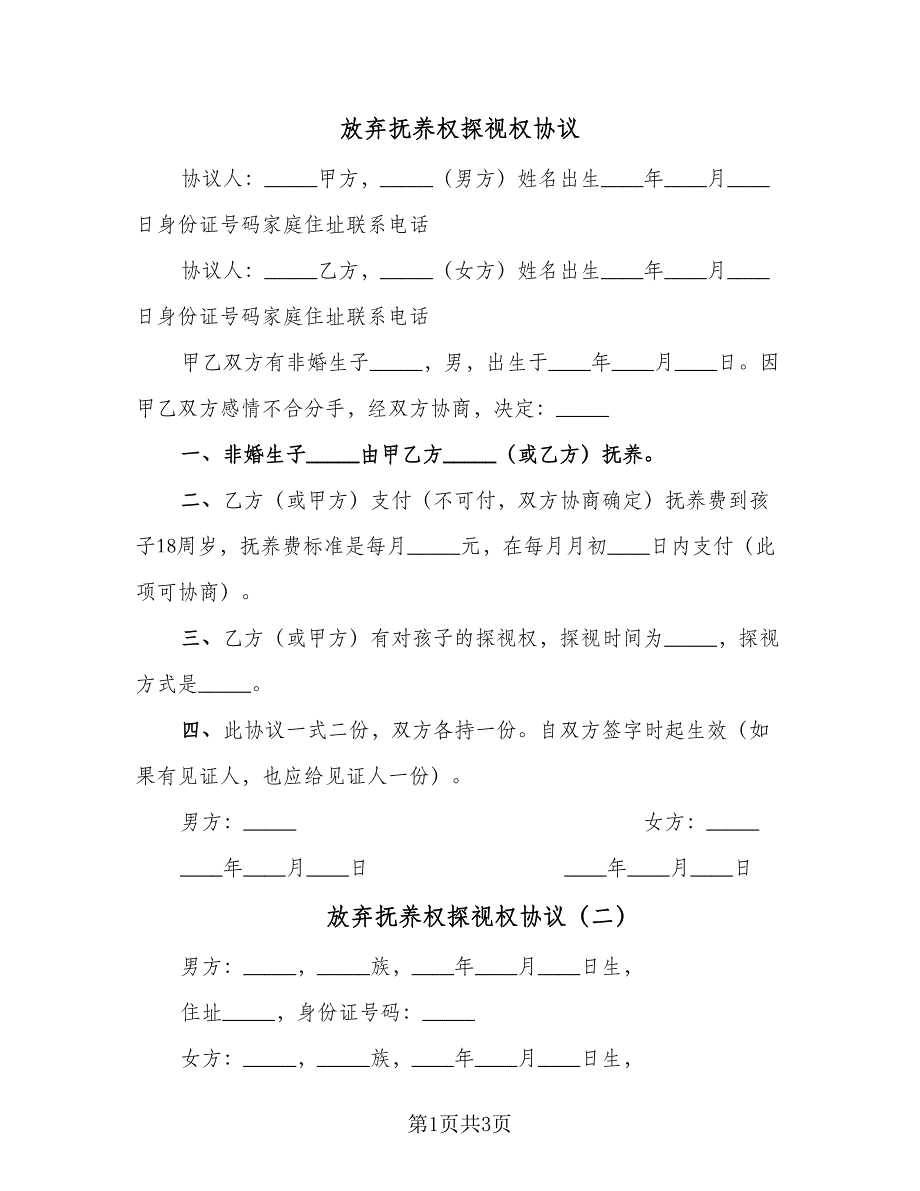 放弃抚养权探视权协议
协议人：_____甲方，_____（男方）姓名出生____年____月____
日身份证号码家庭住址联系电话
协议人：_____乙方，_____（女方）姓名出生____年____月____
日身份证号码家庭住址联系电话
甲乙双方有非婚生子_____，男，出生于____年____月____日。因
甲乙双方感情不合分手，经双方协商，决定：_____
一、非婚生子_____由甲乙方_____（或乙方）抚养。
二、乙方（或甲方）支付（不可付，双方协商确定）抚养费到孩
子18周岁，抚养费标准是每月_____元，在每月月初____日内支付（此
项可协商）。
三、乙方（或甲方）有对孩子的探视权，探视时间为_____，探视
方式是_____。
四、此协议一式二份，双方各持一份。自双方签字时起生效（如
果有见证人，也应给见证人一份）。
男方：_____ 女方：_____
____年____月____日 ____年____月____日
放弃抚养权探视权协议（二）
男方：_____，_____族，____年____月____日生，
住址_____，身份证号码：_____
女方：_____，_____族，____年____月____日生，
第1页共3页